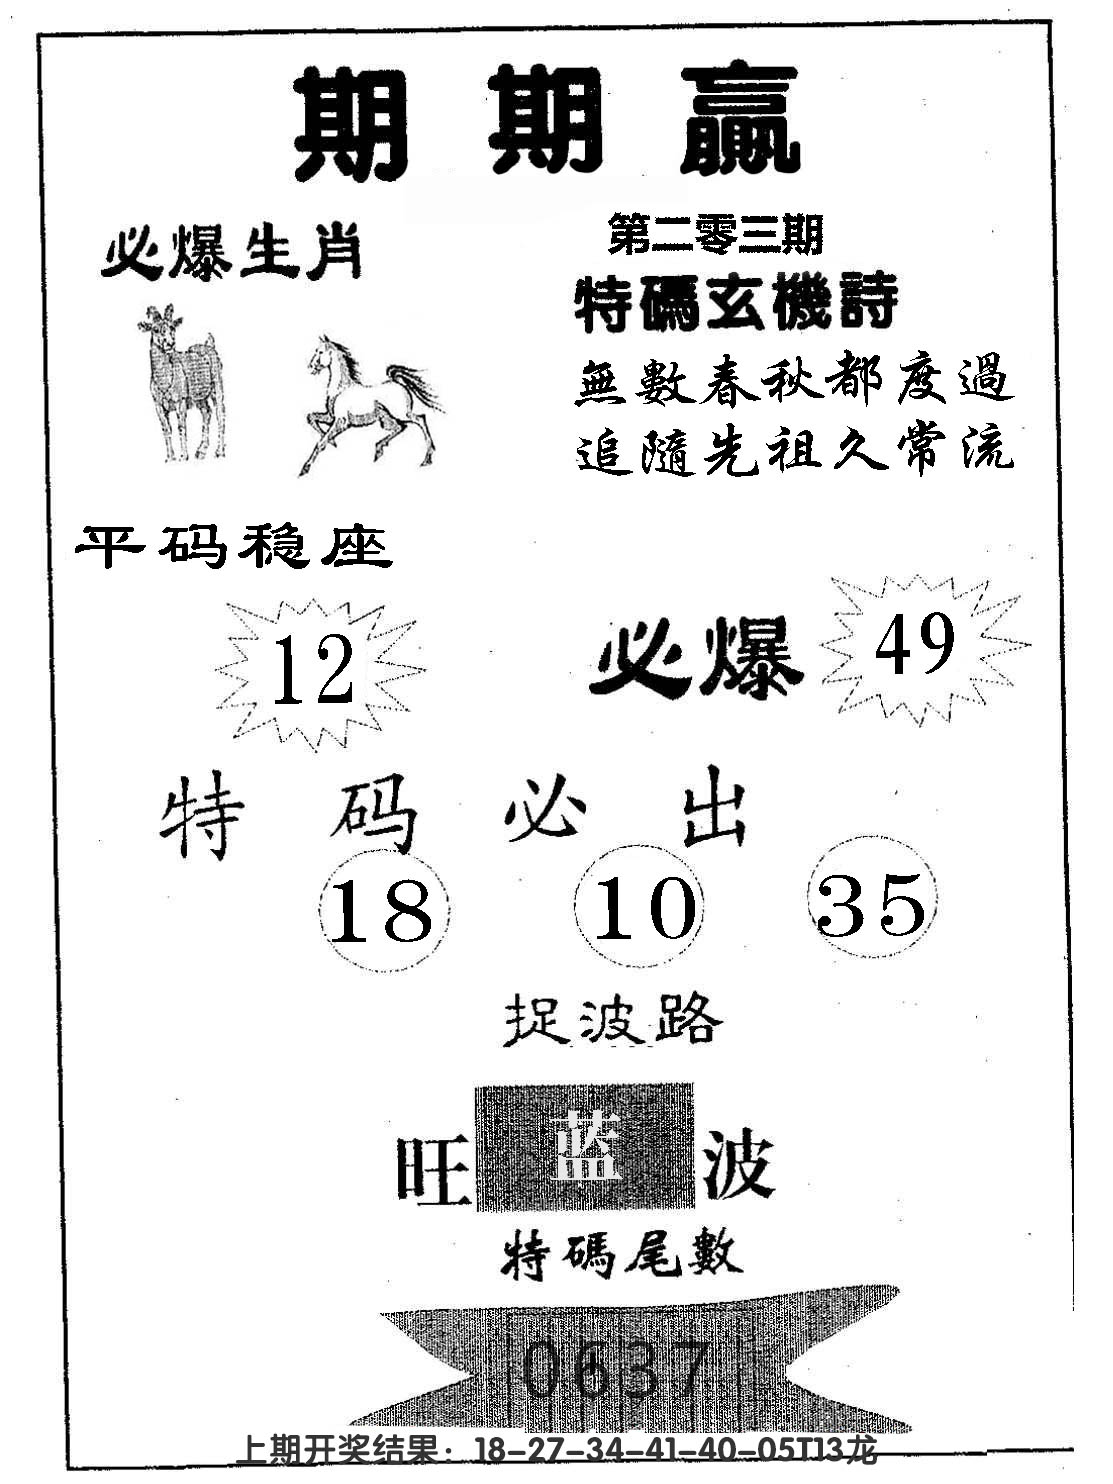 期期赢
必爆生肖
第二零三期
特碼玄機詩
無數春秋都度過
追隨先祖久常流
平码稳座
12
必爆 49
特码必出
18 10 35
捉波路
旺 蓝 波
特碼尾數
0637
上期开奖结果：18-27-34-41-40-05T13龙